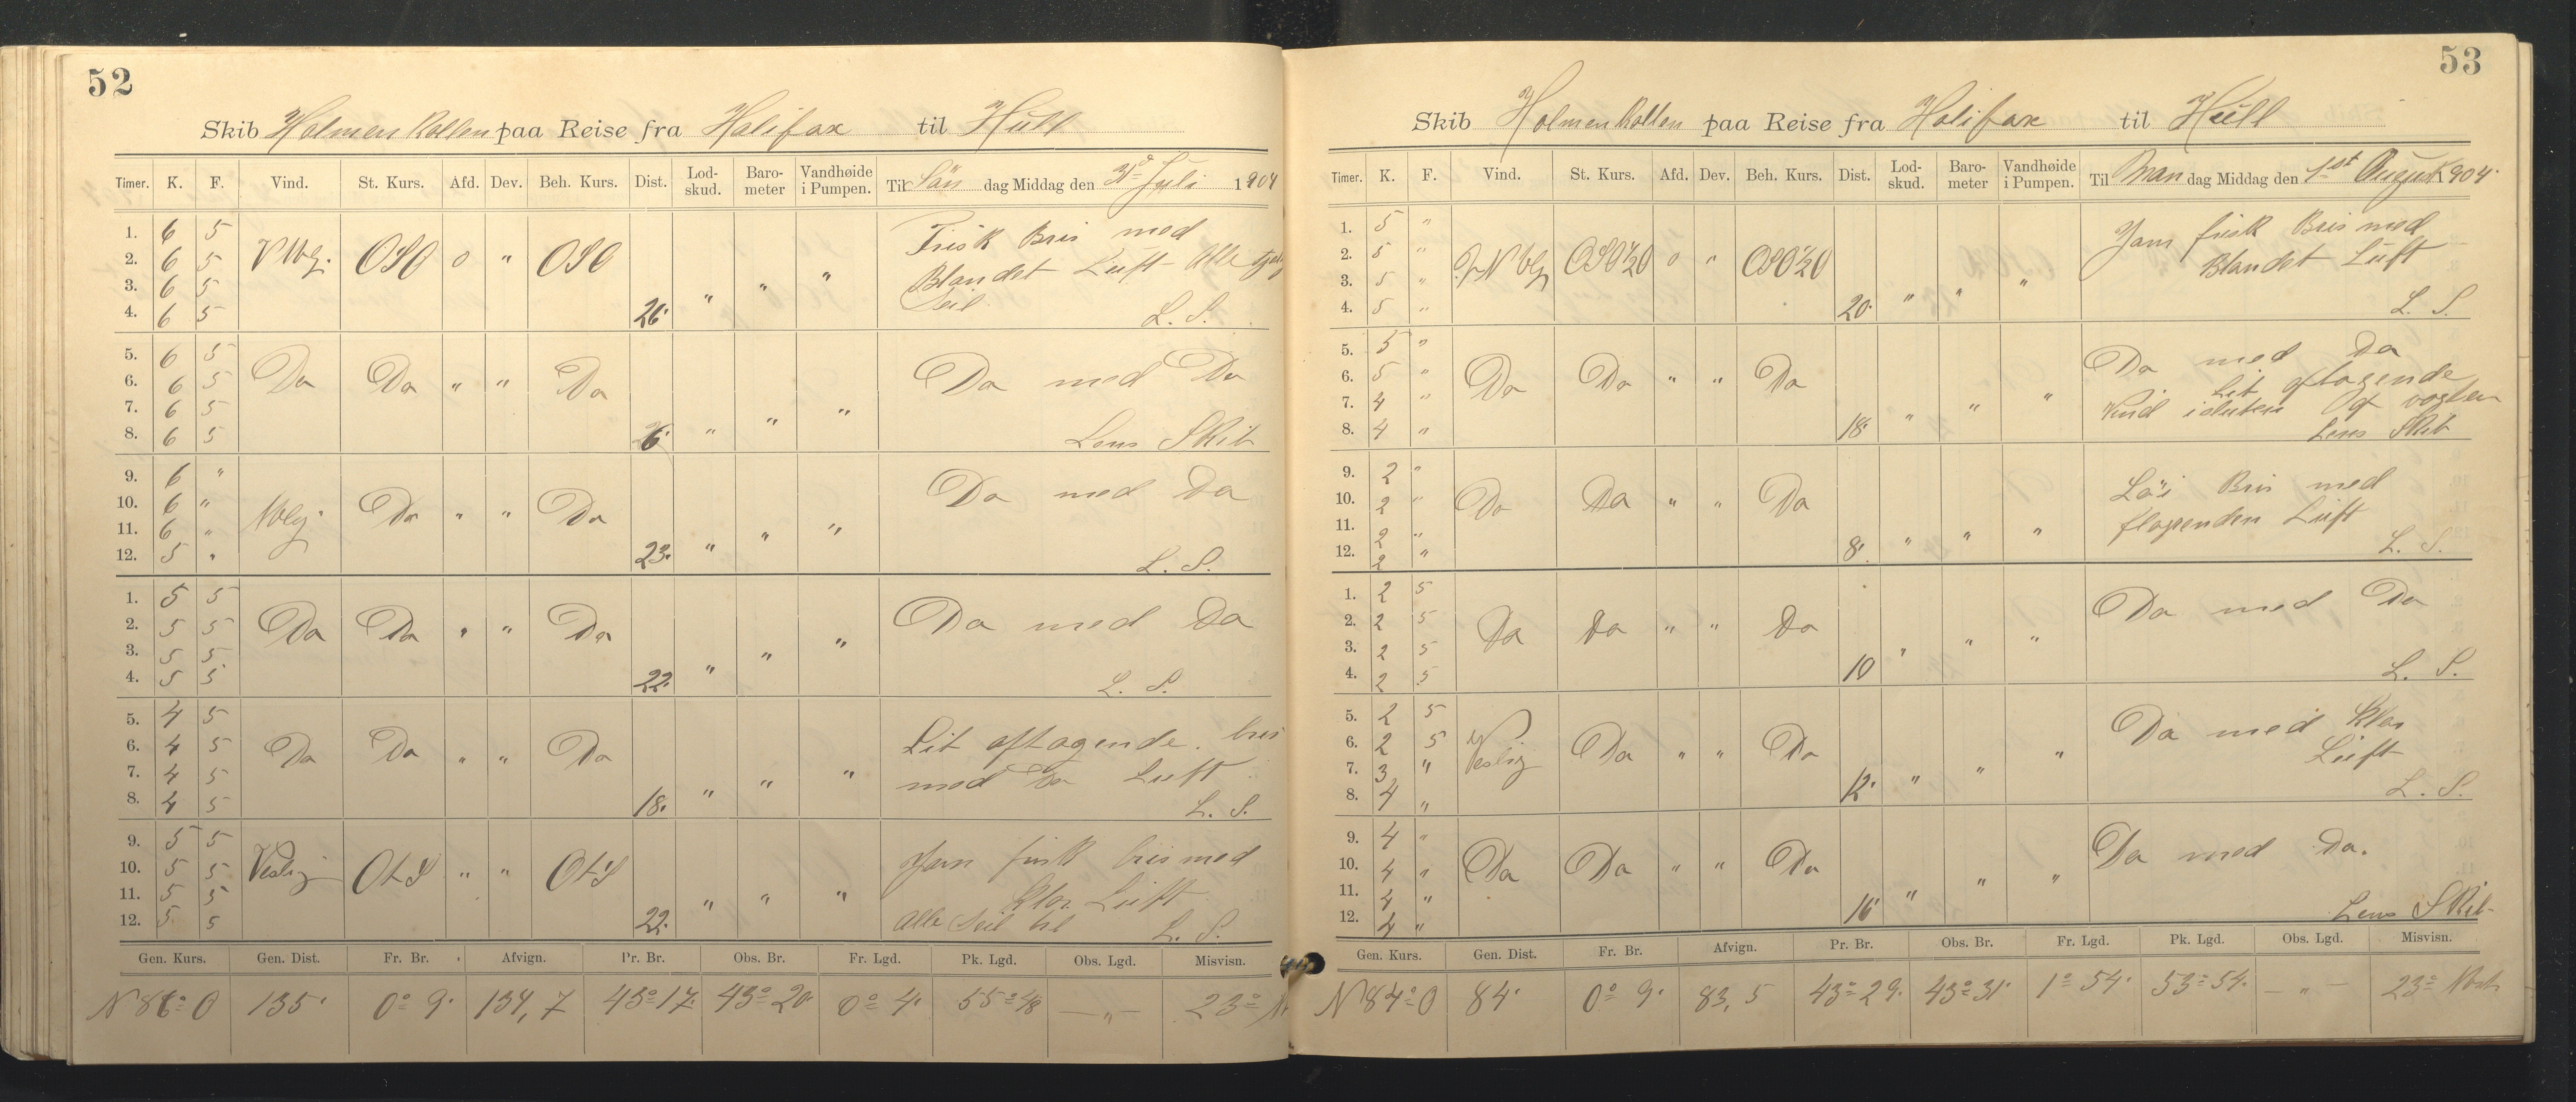 52
Skib Holmenkollen paa Reise fra Halifax til Hull
Timer. K. F. Vind. St. Kurs. Afd. Dev. Beh. Kurs. Dist. Lod-skud. Baro-meter Vandhøide i Pumpen. Til Søn dag Middag den 31 Juli 1904
1. 6 5 Frisk Bris med
2. 6 5 OSO 0 " OSO Blandet Luft Alle
3. 6 5 " " " Seil
4. 6 5 26. L. S.
5. 6 5
6. 6 5 Do Do " " Do Do med Do
7. 6 5 " " "
8. 6 5 26. Lens Skib
9. 6 "
10. 6 " Do " " Do Do med Do
11. 6 " " " "
12. 5 " 23. L. S.
1. 5 5
2. 5 5 Do Do " " Do Do med Do
3. 5 5 " " "
4. 5 5 22. L. S.
5. 4 5
6. 4 5 Do Do " " Do Lit aftagende bris
7. 4 5 " " " med Do Luft
8. 4 5 18. L. S.
9. 5 5 Jevn frisk bris med
10. 5 5 Veslig OtS " " OtS
11. 5 5 " " " klar Luft
12. 5 5 22. Alle Seil til L. S.
Gen. Kurs. Gen. Dist. Fr. Br. Afvign. Pr. Br. Obs. Br. Fr. Lgd. Pk. Lgd. Obs. Lgd. Misvisn.
N 86° O 135. 0° 9. 134,7 43° 17. 43° 20. 0° 4. 55° 48 — " — 23°
53
Skib Holmenkollen paa Reise fra Halifax til Hull
Timer. K. F. Vind. St. Kurs. Afd. Dev. Beh. Kurs. Dist. Lod-skud. Baro-meter Vandhøide i Pumpen. Til Man dag Middag den 1st August 1904.
1. 5 " Jevn frisk Bris med
2. 5 " OSO½O 0 " OSO½O Blandet Luft
3. 5 " " " "
4. 5 " 20. L. S.
5. 5 " Do med Do
6. 5 " Do Do " " Do Lit aftagende
7. 4 " " " " Vind
8. 4 " 18. Lens Skib
9. 2 "
10. 2 " Do Do " " Do Bris med
11. 2 " " " " Luft
12. 2 " 8. L. S.
1. 2 5
2. 2 5 Do Do " " Do Do med Do
3. 2 5 " " "
4. 2 5 10 L. S.
5. 2 5 Do med Klar
6. 2 5 Veslig Do " " Do
7. 3 " " " " Luft
8. 4 " 12. L. S.
9. 4 "
10. 4 " Do Do " " Do Do med Do.
11. 4 " " " "
12. 4 " 16 Lens Skib
Gen. Kurs. Gen. Dist. Fr. Br. Afvign. Pr. Br. Obs. Br. Fr. Lgd. Pk. Lgd. Obs. Lgd. Misvisn.
N 84° O 84. 0° 9. 83,5 43° 29. 43° 31. 1° 54. 53° 54. — " — 23° Vest